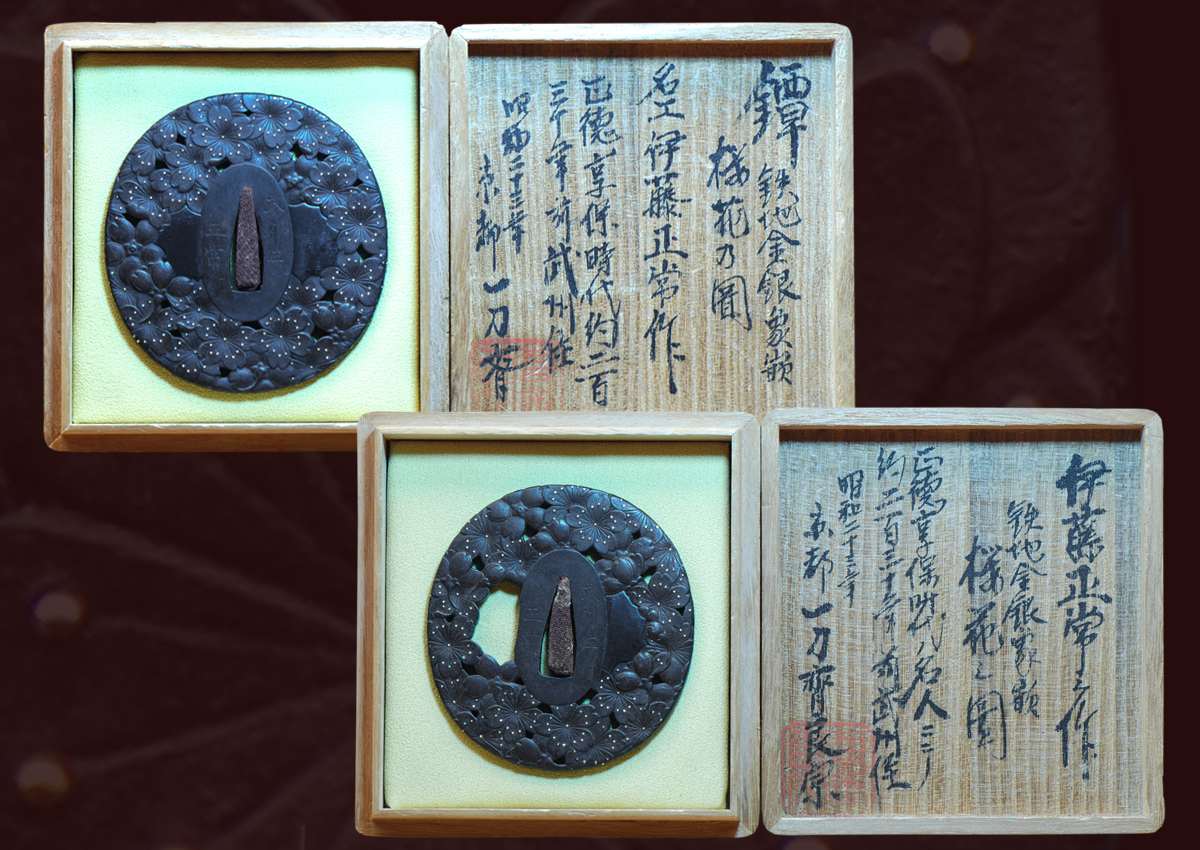 鐔
鉄地金銀象嵌
桜花乃圖
名工伊藤正常作
正徳享保時代約二百
三十年前武州住
昭和二十三年
京都 一刀齊
伊藤正常之作
鉄地金銀象嵌
桜花之圖
正徳享保時代名人ニシテ
約二百三十年前武州住
昭和二十三年
京都 一刀齊良宗